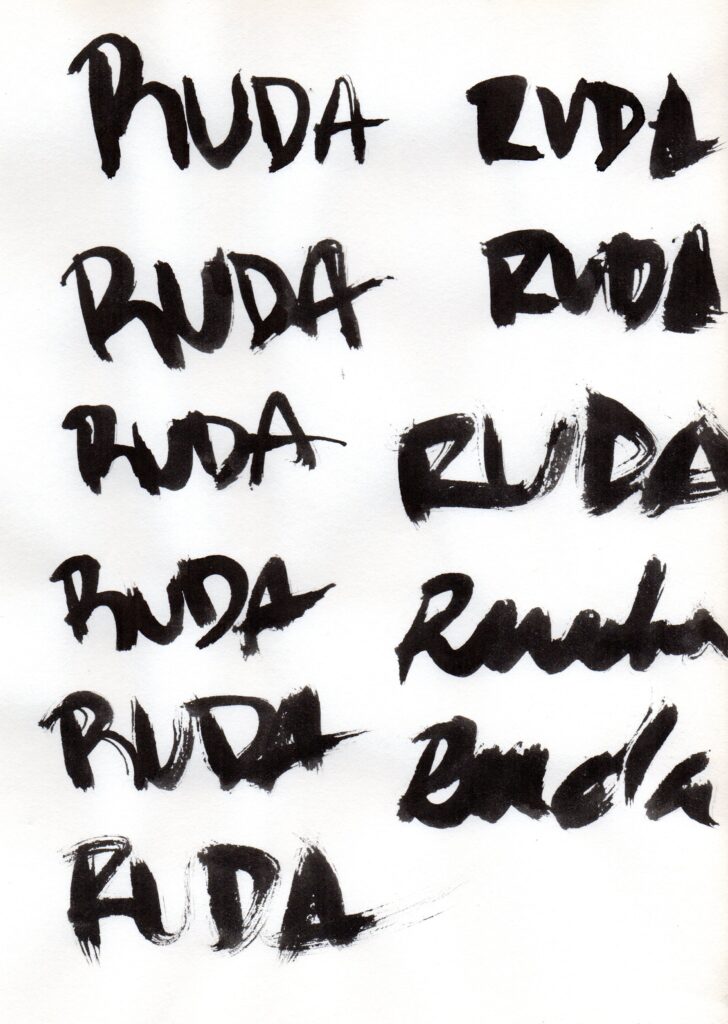 RUDA
RUDA
RUDA
RUDA
RUDA
RUDA
RUDA
RUDA
RUDA
Ruda
Ruda